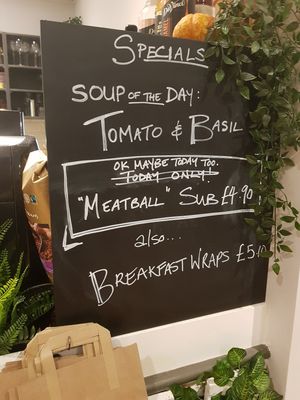 SPECIALS
SOUP OF THE DAY:
TOMATO & BASIL
OK MAYBE TODAY TOO.
TODAY ONLY!
"MEATBALL" SUB £4.90
also...
BREAKFAST WRAPS